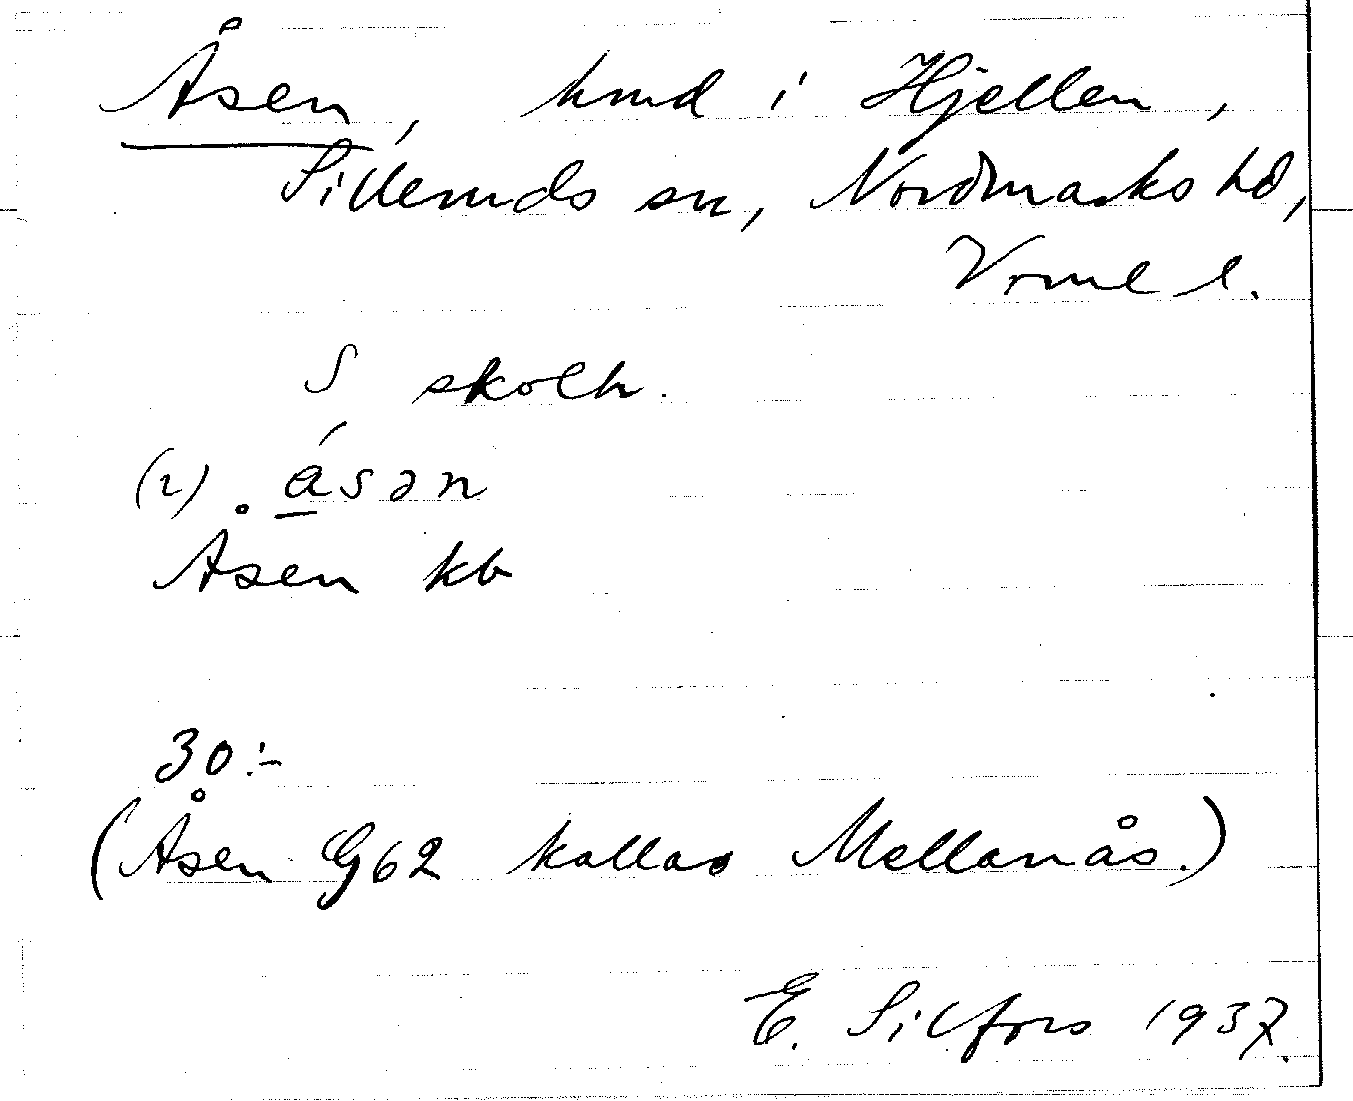 Åsen, hmd i Hjellen,
Silleruds sn, Nordmarks hd,
Vrml l.
S skolh.
(2) . åsən
Åsen kb
30:-
(Åsen G62 kallas Mellanås.)
E. Silfors 1937.